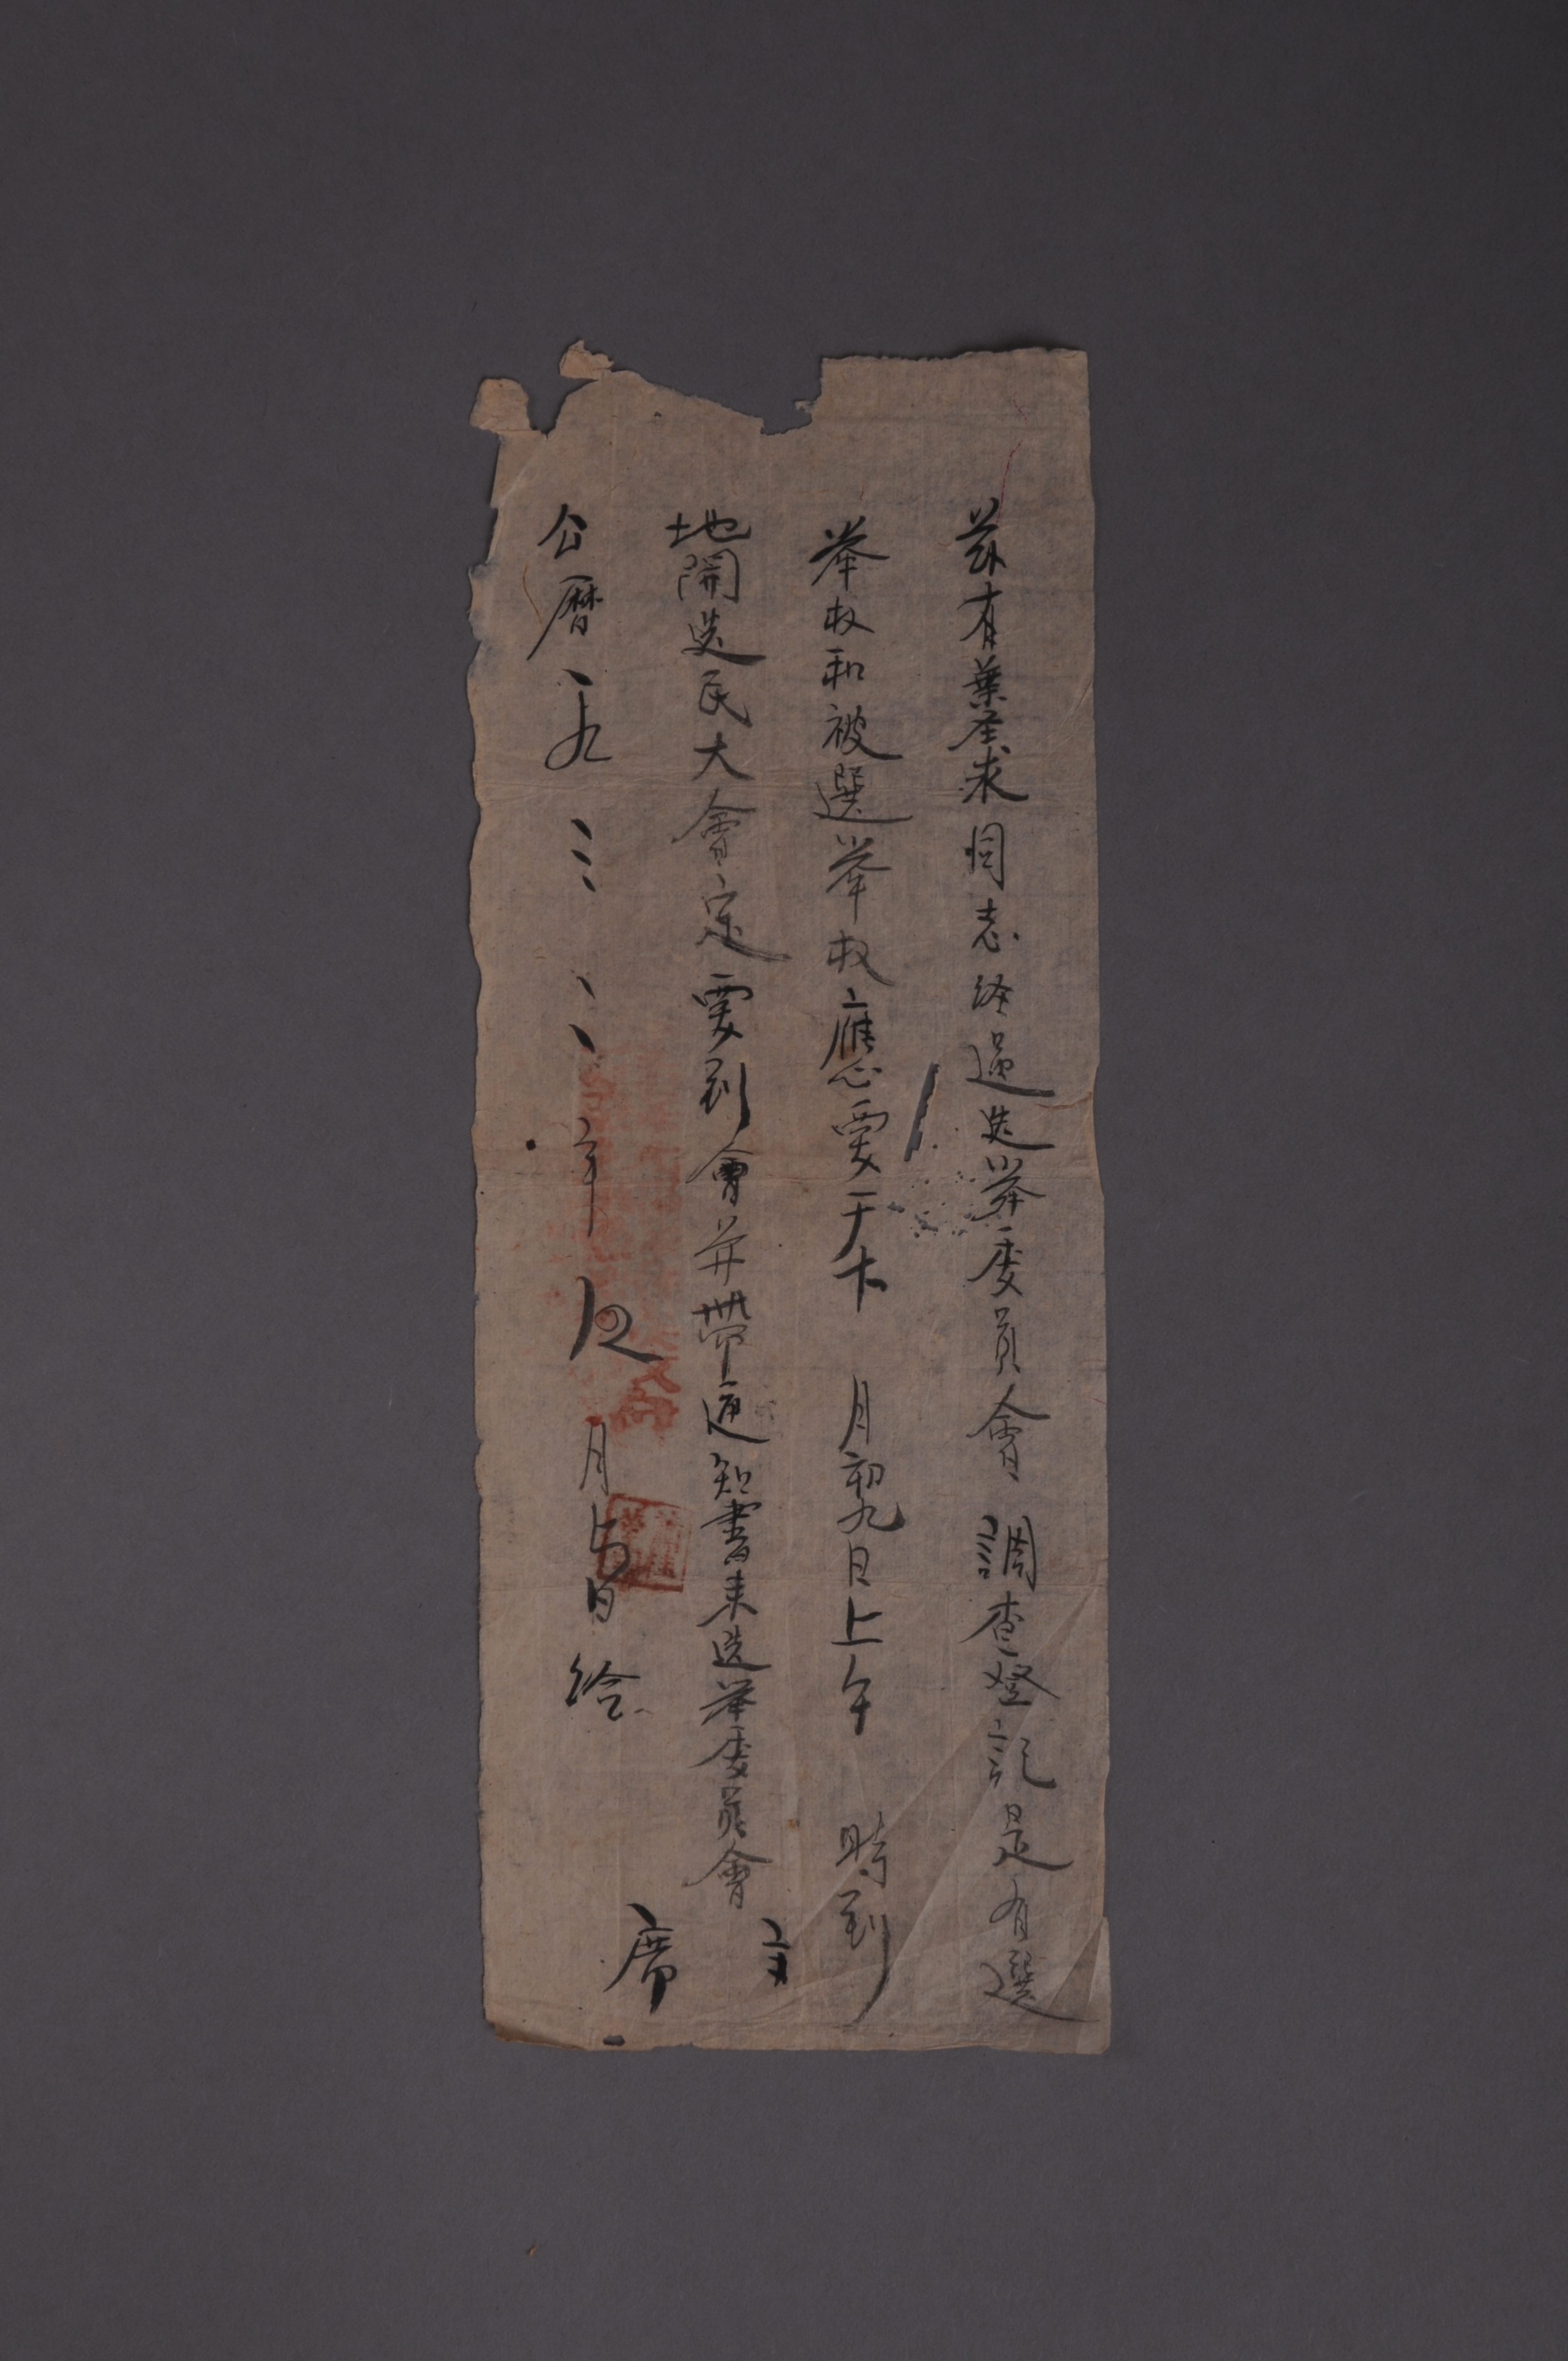 兹有葉圣求同志経過选举委員會調查登記是有選
举权和被選举权應要于本月初九日上午時到
地開选民大會定要到會并帶通知書来选举委員會
主席
公曆一九三二年四月日給